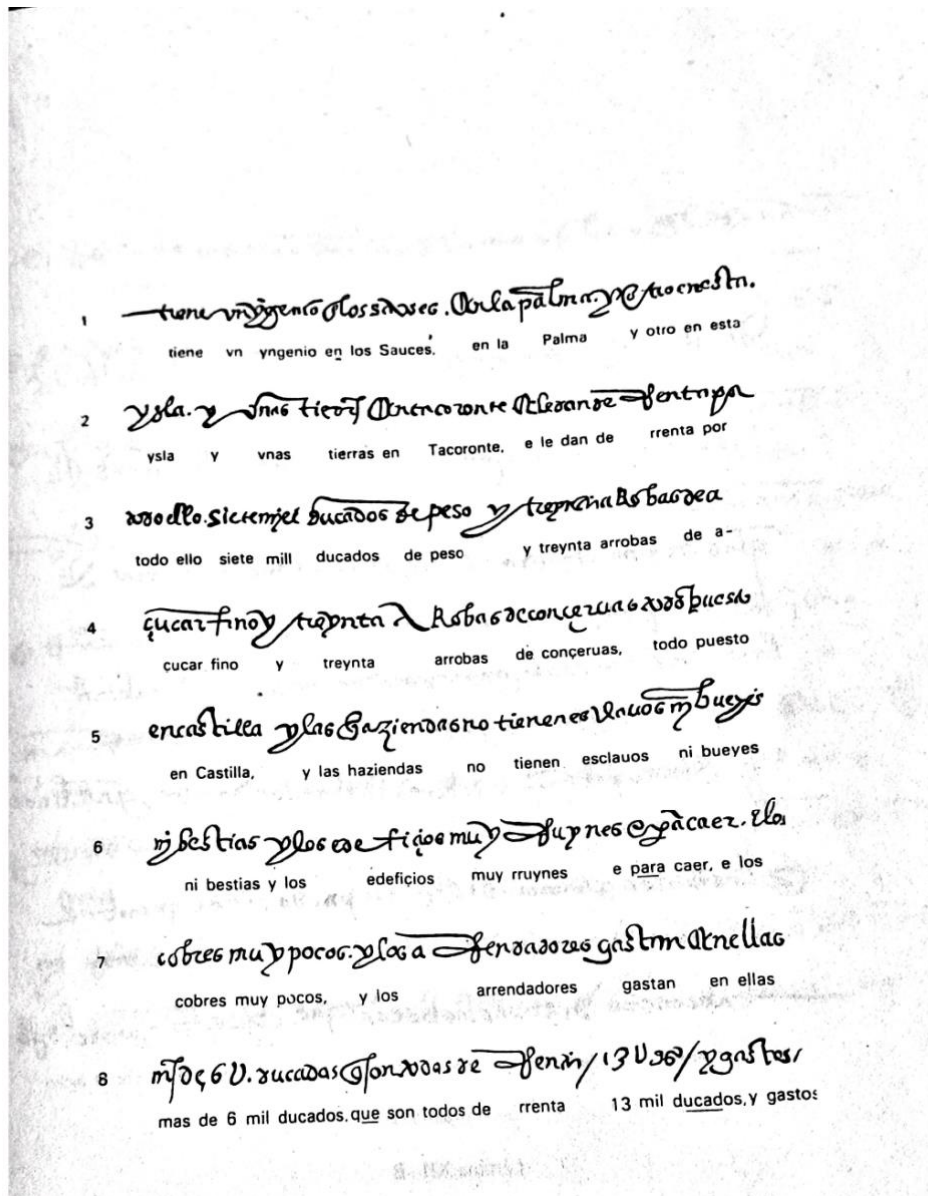 1 tiene vn yngenio en los sauces. en la palma. y otro en esta.
tiene vn yngenio en los Sauces, en la Palma y otro en esta
2 ysla. y vnas tierras en tacoronte e le dan de rrenta por
ysla y vnas tierras en Tacoronte, e le dan de rrenta por
3 todo ello. siete mjll ducados de peso y treynta arrobas de a
todo ello siete mill ducados de peso y treynta arrobas de a-
4 çucar fino y treynta arrobas de conçeruas todo puesto
cucar fino y treynta arrobas de conçeruas, todo puesto
5 en castilla y las haziendas no tienen esclauos nj bueyes
en Castilla, y las haziendas no tienen esclauos ni bueyes
6 nj bestias y los edefiçios muy rruynes e para caer. e los
ni bestias y los edefiçios muy rruynes e para caer, e los
7 cobres muy pocos. y los arrendadores gastan en ellas
cobres muy pocos, y los arrendadores gastan en ellas
8 mas de 6 U. ducados que son todos de rrenta / 13 U dos / y gastos /
mas de 6 mil ducados, que son todos de rrenta 13 mil ducados, y gastos